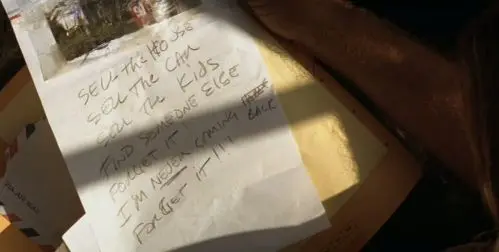 SELL THE HOUSE
SELL THE CAR
SELL THE KIDS
FIND SOMEONE ELSE
FORGET IT
I'M NEVER COMING BACK
FORGET IT!!!
PAR AVION